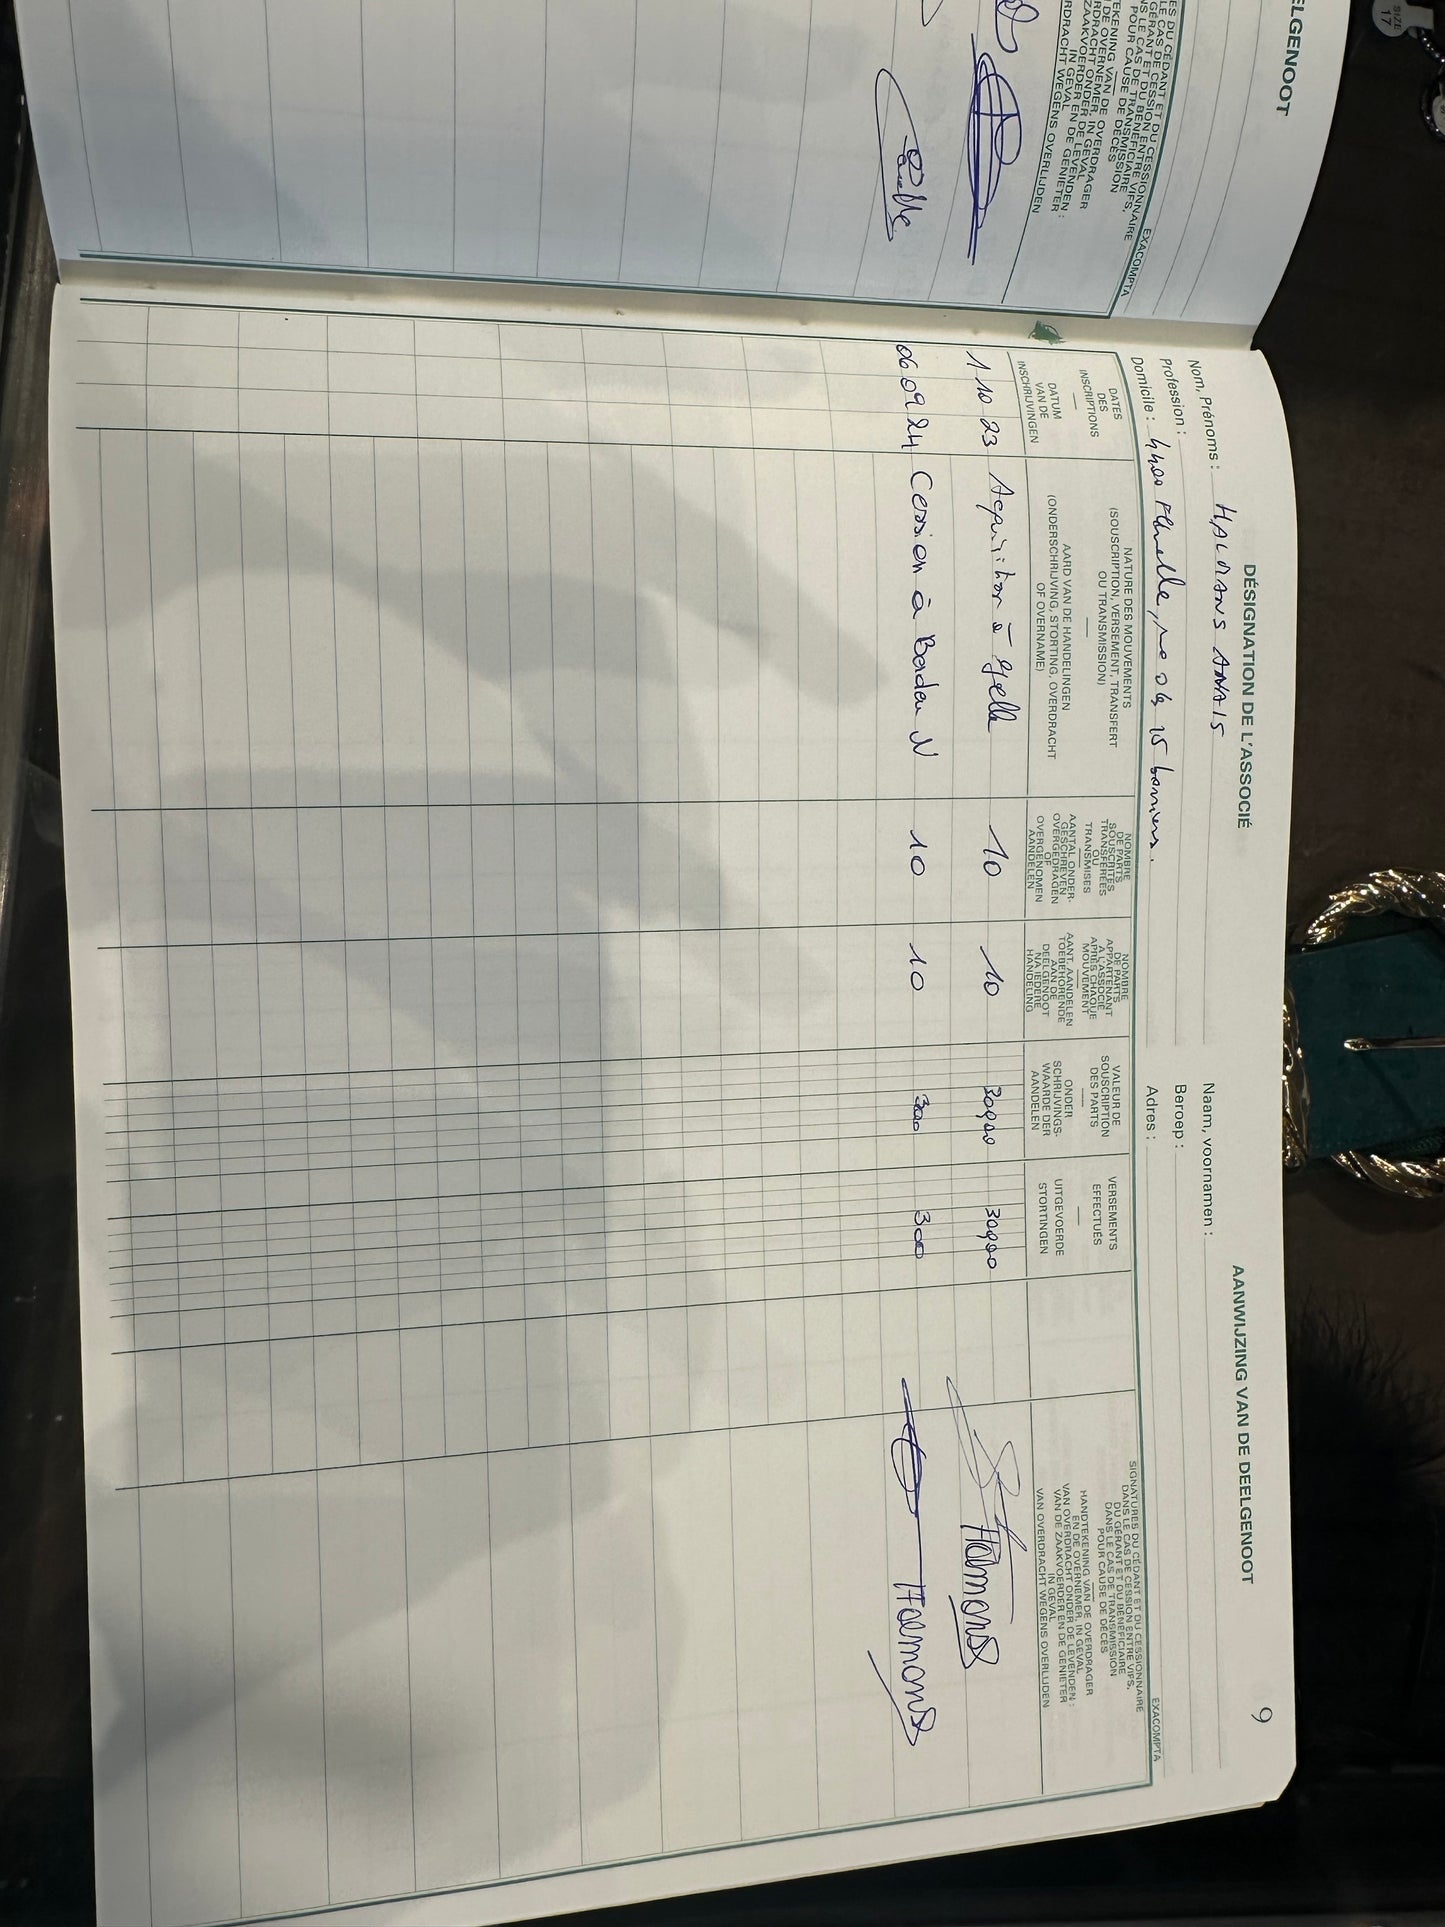 ELGENOOT
ES DU CÉDANT ET DU CESSIONNAIRE
LE CAS DE CESSION ENTRE VIFS,
GÉRANT ET DU BÉNÉFICIAIRE
NS LE CAS DE TRANSMISSION
POUR CAUSE DE DÉCÈS
TEKENING VAN DE OVERDRAGER
DE OVERNEMER, IN GEVAL
RDRACHT ONDER DE LEVENDEN :
ZAAKVOERDER EN DE GENIETER
IN GEVAL
RDRACHT WEGENS OVERLIJDEN
EXACOMPTA
SIZE
17
9
DÉSIGNATION DE L'ASSOCIÉ
AANWIJZING VAN DE DEELGENOOT
Nom, Prénoms : HALMANS ANAIS
Naam, voornamen :
Profession :
Beroep :
Domicile : 4400 rue 15
Adres :
EXACOMPTA
DATES
DES
INSCRIPTIONS
DATUM
VAN DE
INSCHRIJVINGEN
NATURE DES MOUVEMENTS
(SOUSCRIPTION, VERSEMENT, TRANSFERT
OU TRANSMISSION)
AARD VAN DE HANDELINGEN
(ONDERSCHRIJVING, STORTING, OVERDRACHT
OF OVERNAME)
NOMBRE
DE PARTS
SOUSCRITES
TRANSFÉRÉES
OU
TRANSMISES
AANTAL ONDER-
GESCHREVEN
OVERGEDRAGEN
OF
OVERGENOMEN
AANDELEN
NOMBRE
DE PARTS
APPARTENANT
A L'ASSOCIÉ
APRÈS CHAQUE
MOUVEMENT
AANT. AANDELEN
TOEBEHORENDE
AAN DE
DEELGENOOT
NA IEDERE
HANDELING
VALEUR DE
SOUSCRIPTION
DES PARTS
ONDER
SCHRIJVINGS-
WAARDE DER
AANDELEN
VERSEMENTS
EFFECTUÉS
UITGEVOERDE
STORTINGEN
SIGNATURES DU CÉDANT ET DU CESSIONNAIRE
DANS LE CAS DE CESSION ENTRE VIFS,
DU GÉRANT ET DU BÉNÉFICIAIRE
DANS LE CAS DE TRANSMISSION
POUR CAUSE DE DÉCÈS
HANDTEKENING VAN DE OVERDRAGER
EN DE OVERNEMER, IN GEVAL
VAN OVERDRACHT ONDER DE LEVENDEN :
VAN DE ZAAKVOERDER EN DE GENIETER
IN GEVAL
VAN OVERDRACHT WEGENS OVERLIJDEN
1 10 23 Acquisition à 10 10 300,00 300,00 Halmans
06 09 24 Cession à N 10 10 300 300